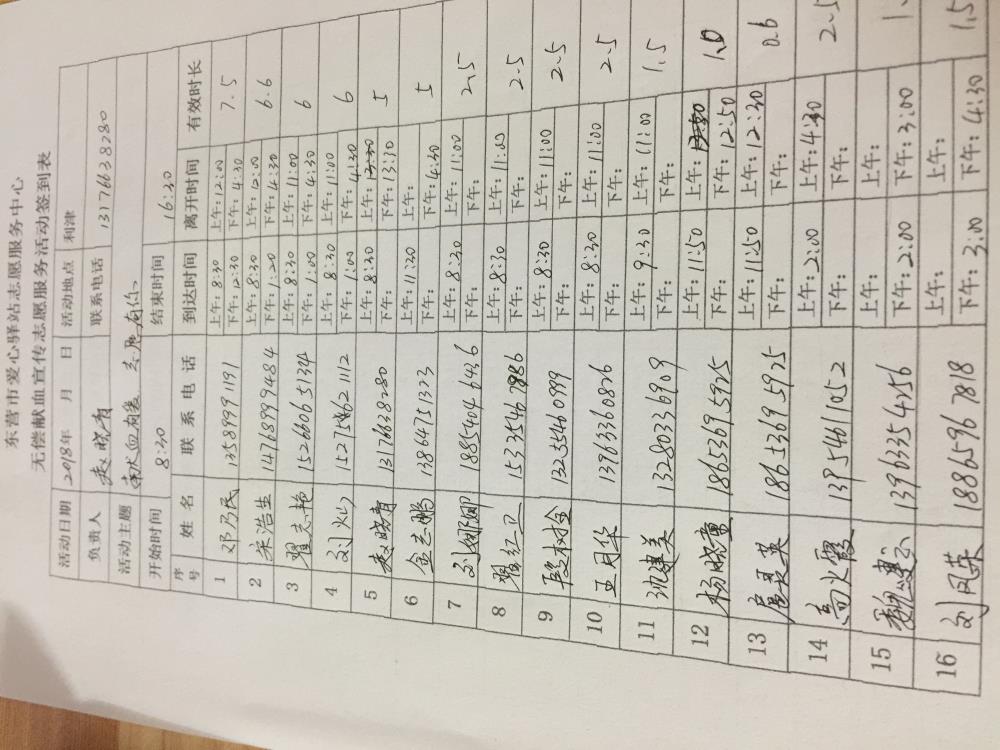 东营市爱心驿站志愿服务中心
无偿献血宣传志愿服务活动签到表
活动日期 2018年 月 日 活动地点 利津
负责人 赵晓青 联系电话 13176638280
活动主题 献血有爱、志愿有你
开始时间 8:30 结束时间 16:30
序号 姓名 联系电话 到达时间 离开时间 有效时长
1 邓乃民 13589991191 上午:8:30 下午:12:30 上午:12:00 下午:4:30 7.5
2 宋浩生 14768999484 上午:8:30 下午:1:20 上午:12:00 下午:4:30 6.6
3 翟克艳 15266651734 上午:8:30 下午:1:00 上午:11:00 下午:4:30 6
4 刘灿 15275621112 上午:8:30 下午:1:00 上午:11:00 下午:4:30 6
5 赵晓青 13176638280 上午:8:30 下午: 上午: 下午:13:10 5
6 金志鹏 13864751323 上午:11:30 下午: 上午: 下午:4:30 5
7 刘娜娜 18854046646 上午:8:30 下午: 上午:11:00 下午: 2.5
8 翟红卫 15335467886 上午:8:30 下午: 上午:11:00 下午: 2.5
9 13255460999 上午:8:30 下午: 上午:11:00 下午: 2.5
10 王月华 13963360826 上午:8:30 下午: 上午:11:00 下午: 2.5
11 沈建美 13280336909 上午:9:30 下午: 上午:11:00 下午: 1.5
12 杨晓童 18653695925 上午:11:50 下午: 上午: 下午:12:50 1.0
13 扈灵英 18653695925 上午:11:50 下午: 上午:12:30 下午: 0.6
14 高火霞 13954611052 上午:2:00 下午: 上午:4:30 下午: 2.5
15 13963354256 上午: 下午:2:00 上午: 下午:3:00 1.
16 刘凤英 18865967818 上午: 下午:3:00 上午: 下午:4:30 1.5